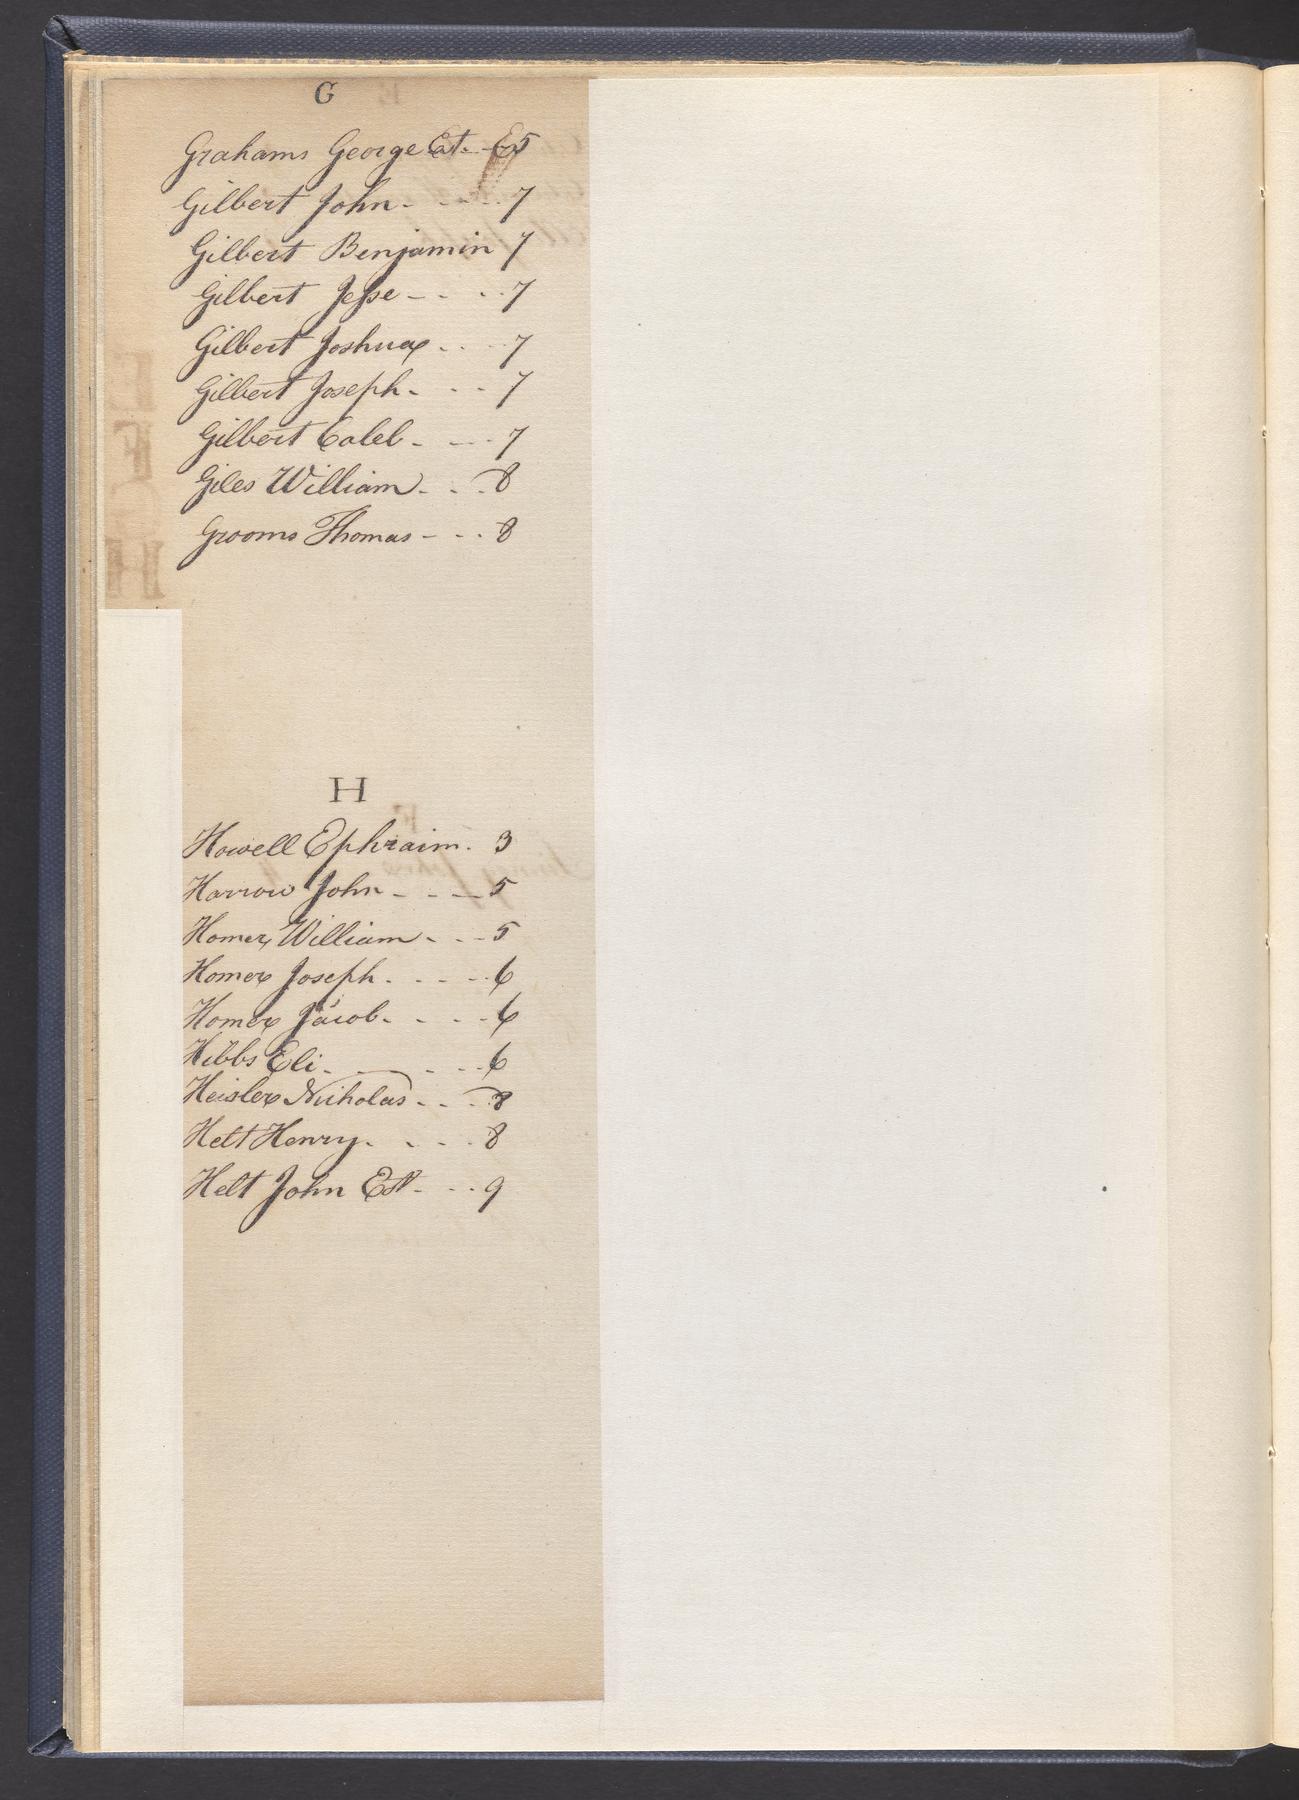 G
Grahams George Est. - 5
Gilbert John - - - - 7
Gilbert Benjamin 7
Gilbert Jesse - - - - 7
Gilbert Joshua - - - - 7
Gilbert Joseph - - - 7
Gilbert Caleb - - - - 7
Giles William - - - 8
Grooms Thomas - - - 8
H
Howell Ephraim. 3
Harrow John - - - - 5
Homer William - - - 5
Homer Joseph - - - - 6
Homer Jacob - - - - 6
Hibbs Eli - - - - - 6
Heisler Nicholas - - - 8
Helt Henry - - - - 8
Helt John Est - - - 9